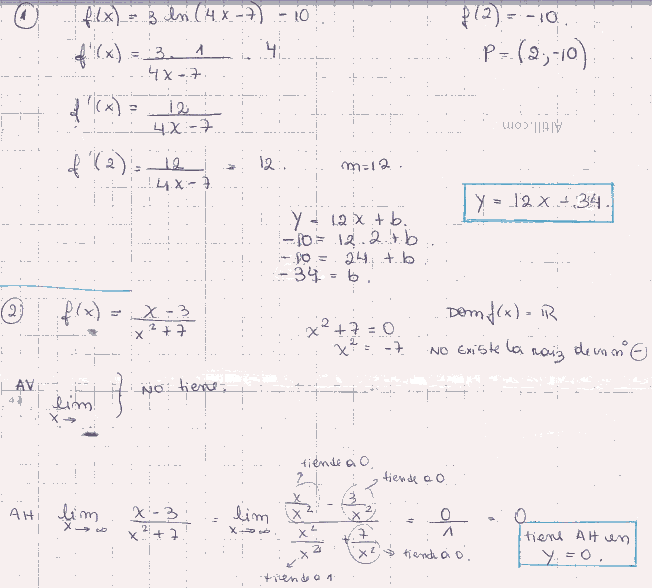 ① f(x) = 3 ln(4x-7) -10 f(2) = -10.
f'(x) = 3.1 / 4x-7 . 4 P = (2, -10)
f'(x) = 12 / 4x-7
Altill.com
f'(2) = 12 / 4x-7 = 12. m=12.
y = 12x - 34.
y = 12x + b.
-10 = 12.2 + b
-10 = 24 + b
-34 = b.
② f(x) = x-3 / x²+7 Dom f(x) = ℝ
x²+7 = 0
x² = -7 NO EXISTE la raiz de un nº ⊖
AV lim x→ } NO tiene.
tiende a 0.
tiende a 0.
AH lim x→∞ x-3 / x²+7 = lim x→∞ (x/x² - 3/x²) / (x²/x² + 7/x²) = 0/1 = 0
tiende a 0.
tiende a 1
tiene AH en
y = 0.